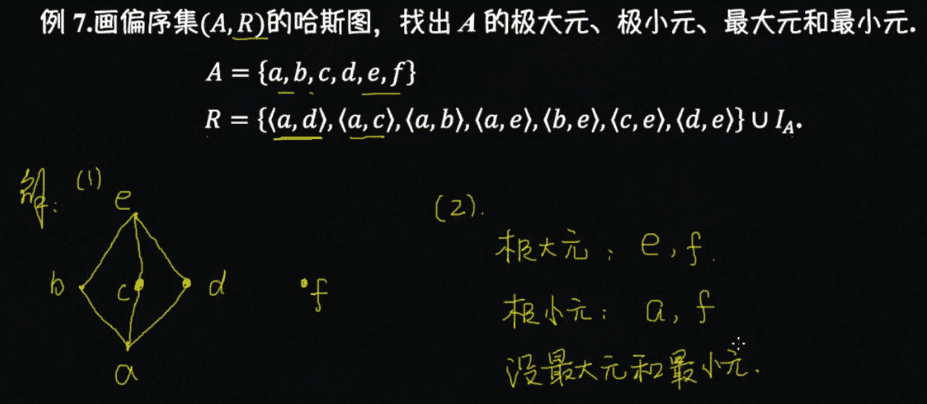 例 7.画偏序集(A,R)的哈斯图，找出 A 的极大元、极小元、最大元和最小元.
A = {a,b,c,d,e,f}
R = {⟨a,d⟩,⟨a,c⟩,⟨a,b⟩,⟨a,e⟩,⟨b,e⟩,⟨c,e⟩,⟨d,e⟩} ∪ I_A.
解：(1)
e
b c d f
a
(2).
极大元：e, f.
极小元：a, f
没最大元和最小元.